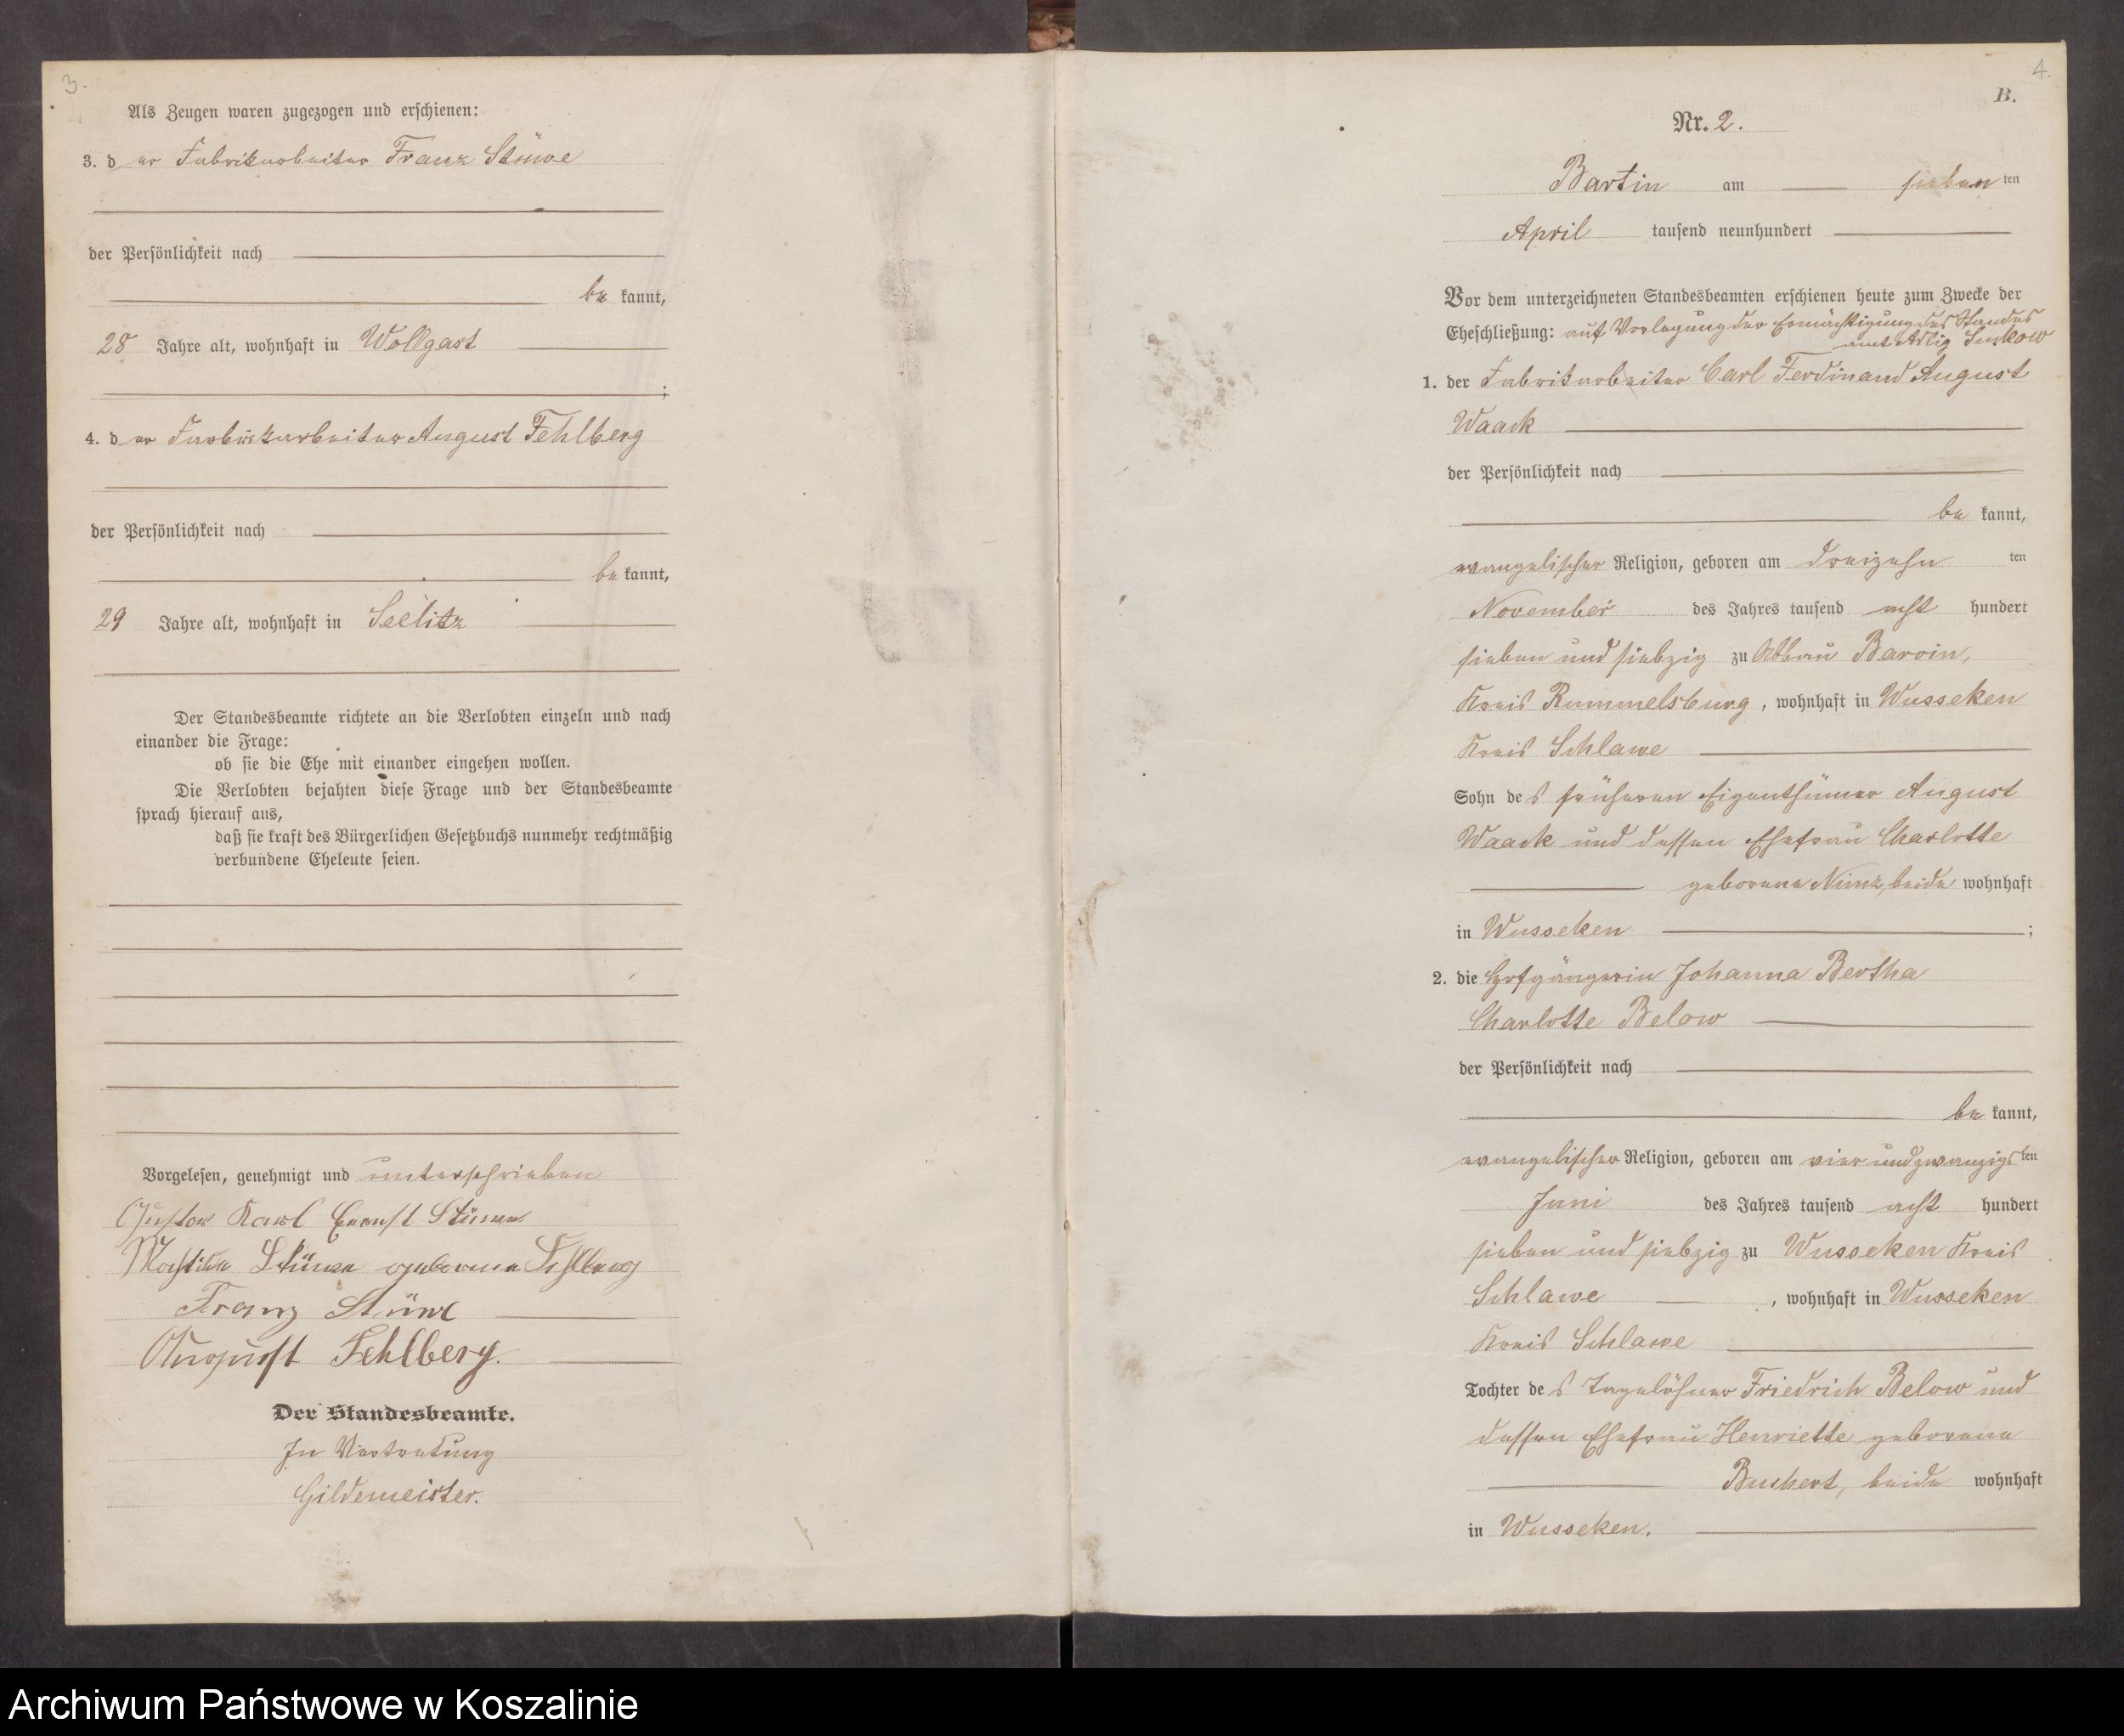 3.
Als Zeugen waren zugezogen und erschienen:
3. der Fabrikarbeiter Franz Stüwe
der Persönlichkeit nach
bekannt,
28 Jahre alt, wohnhaft in Wollgast
;
4. der Farbrikarbeiter August Fehlberg
der Persönlichkeit nach
bekannt,
29 Jahre alt, wohnhaft in Seelitz
Der Standesbeamte richtete an die Verlobten einzeln und nach
einander die Frage:
ob sie die Ehe mit einander eingehen wollen.
Die Verlobten bejahten diese Frage und der Standesbeamte
sprach hierauf aus,
daß sie kraft des Bürgerlichen Gesetzbuchs nunmehr rechtmäßig
verbundene Eheleute seien.
Vorgelesen, genehmigt und unterschrieben
Gustav Karl Ernst Stüwe
Stüwe geborene Fehlberg
Franz Stüwe
August Fehlberg.
Der Standesbeamte.
In Vertretung
Gildemeister.
4.
B.
Nr. 2.
Bartin am siebenten
April tausend neunhundert
Vor dem unterzeichneten Standesbeamten erschienen heute zum Zwecke der
Eheschließung: auf Vorlegung der Ermächtigung des Standes
amt Adlig
1. der Fabrikarbeiter Carl Ferdinand August
Waack
der Persönlichkeit nach
bekannt,
evangelischer Religion, geboren am dreizehnten
November des Jahres tausend acht hundert
sieben und siebzig zu Abbau Barvin,
Kreis Rummelsburg, wohnhaft in Wusseken
Kreis Schlawe
Sohn des früheren Eigenthümer August
Waack und dessen Ehefrau Charlotte
geborene Nimz, beide wohnhaft
in Wusseken ;
2. die Hofgängerin Johanna Bertha
Charlotte Below
der Persönlichkeit nach
bekannt,
evangelischer Religion, geboren am vier und zwanzigsten
Juni des Jahres tausend acht hundert
sieben und siebzig zu Wusseken Kreis
Schlawe, wohnhaft in Wusseken
Kreis Schlawe
Tochter des Tagelöhner Friedrich Below und
dessen Ehefrau Henriette geborene
Buchert, beide wohnhaft
in Wusseken.
Archiwum Państwowe w Koszalinie